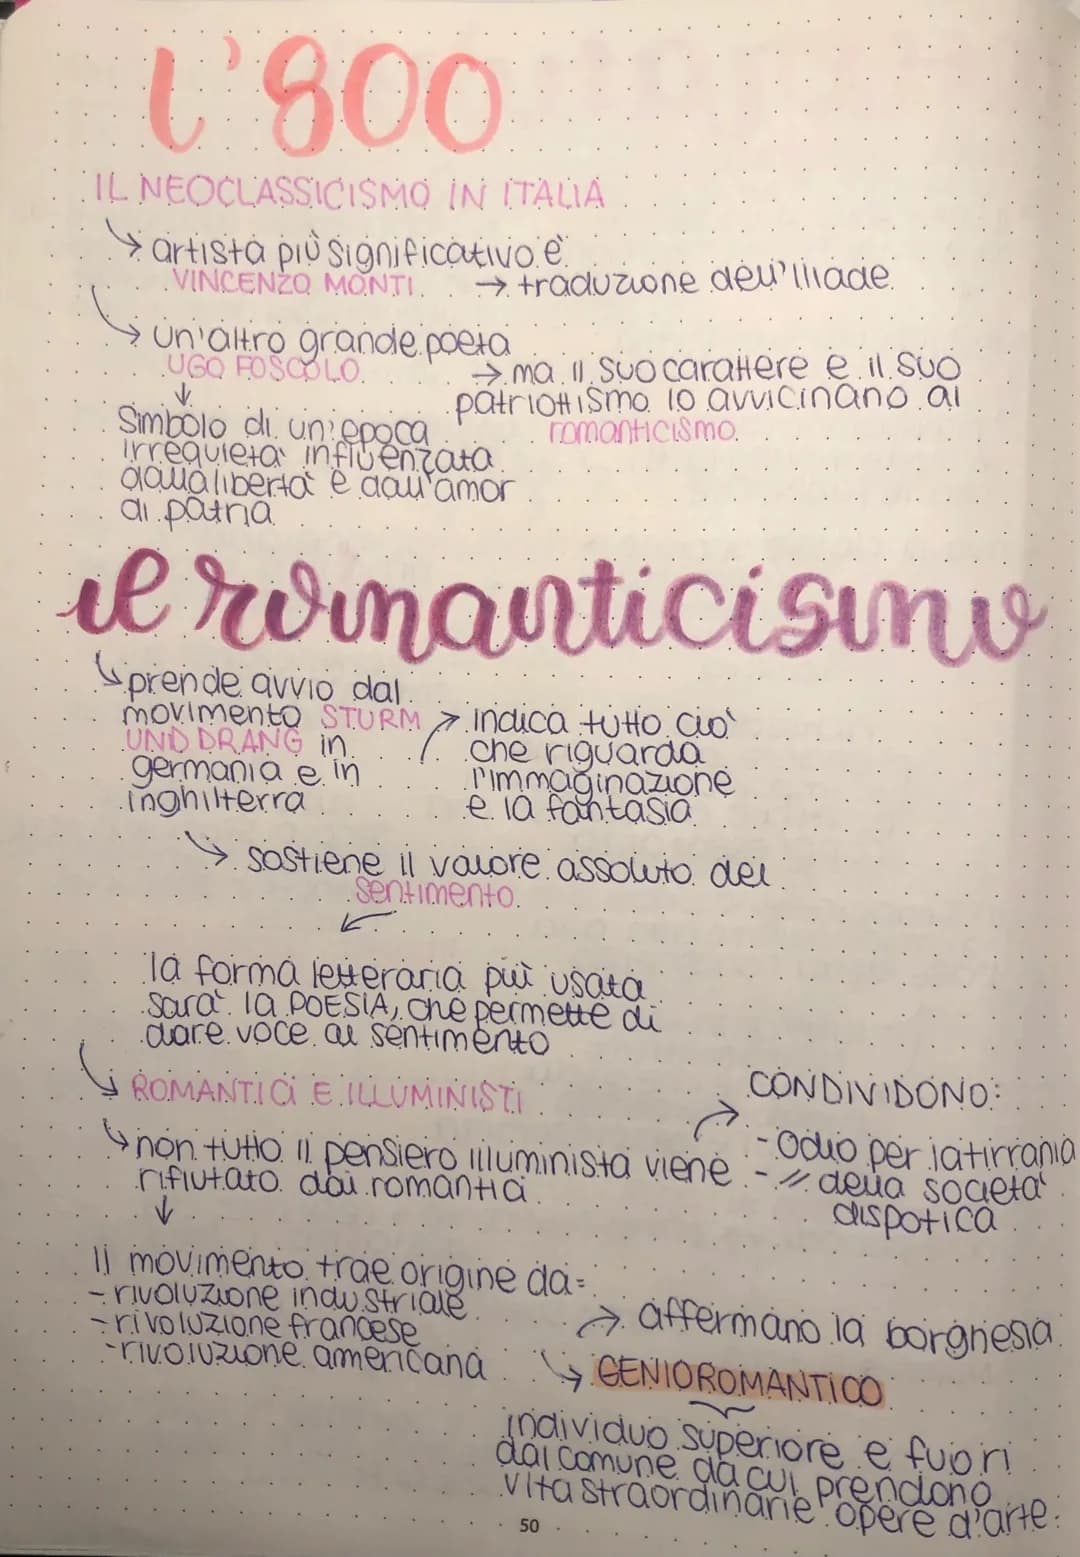 L'800
IL NEOCLASSICISMO IN ITALIA
↳ artista più significativo è
VINCENZO MONTI → traduzione dell'iliade
↳ un'altro grande poeta
UGO FOSCOLO → ma il suo carattere e il suo
patriottismo lo avvicinano al
romanticismo
↓
Simbolo di un'epoca
irrequieta influenzata
dalla libertà e dall'amor
di patria
il romanticismo
↳ prende avvio dal
movimento STURM
UND DRANG in
germania e in
inghilterra
→ indica tutto ciò
che riguarda
l'immaginazione
e la fantasia
↳ sostiene il valore assoluto del
sentimento
↙
la forma letteraria più usata
sarà la POESIA, che permette di
dare voce al sentimento
↳ ROMANTICI E ILLUMINISTI
↳ non tutto il pensiero illuminista viene
rifiutato dai romantici
→ CONDIVIDONO:
- Odio per la tirrania
- // della società
dispotica
↓
Il movimento trae origine da=
- rivoluzione industriale
- rivoluzione francese
- rivoluzione americana
→ affermano la borghesia
↳ GENIO ROMANTICO
individuo superiore e fuori
dal comune da cui prendono
vita straordinarie opere d'arte.
50